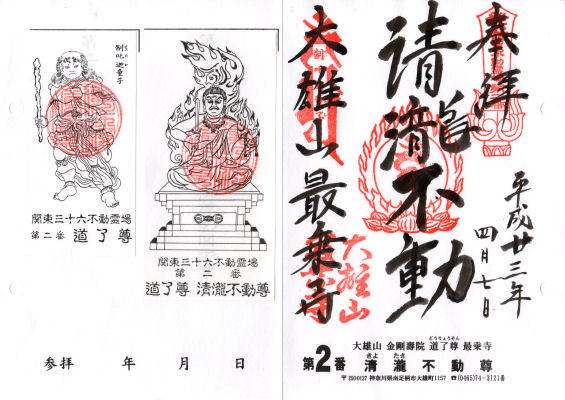 制吒迦童子
関東三十六不動霊場
第二番 道了尊
関東三十六不動霊場
第二番
道了尊 清瀧不動尊
参拝 年 月 日
奉拝
清瀧不動
大雄山最乗寺
平成廿三年
四月七日
大雄山
どうりょうそん
大雄山 金剛壽院 道了尊 最乗寺
きよ たき
第2番 清瀧不動尊
〒250-0127 神奈川県南足柄市大雄町1157 ☎(0465)74-3121番